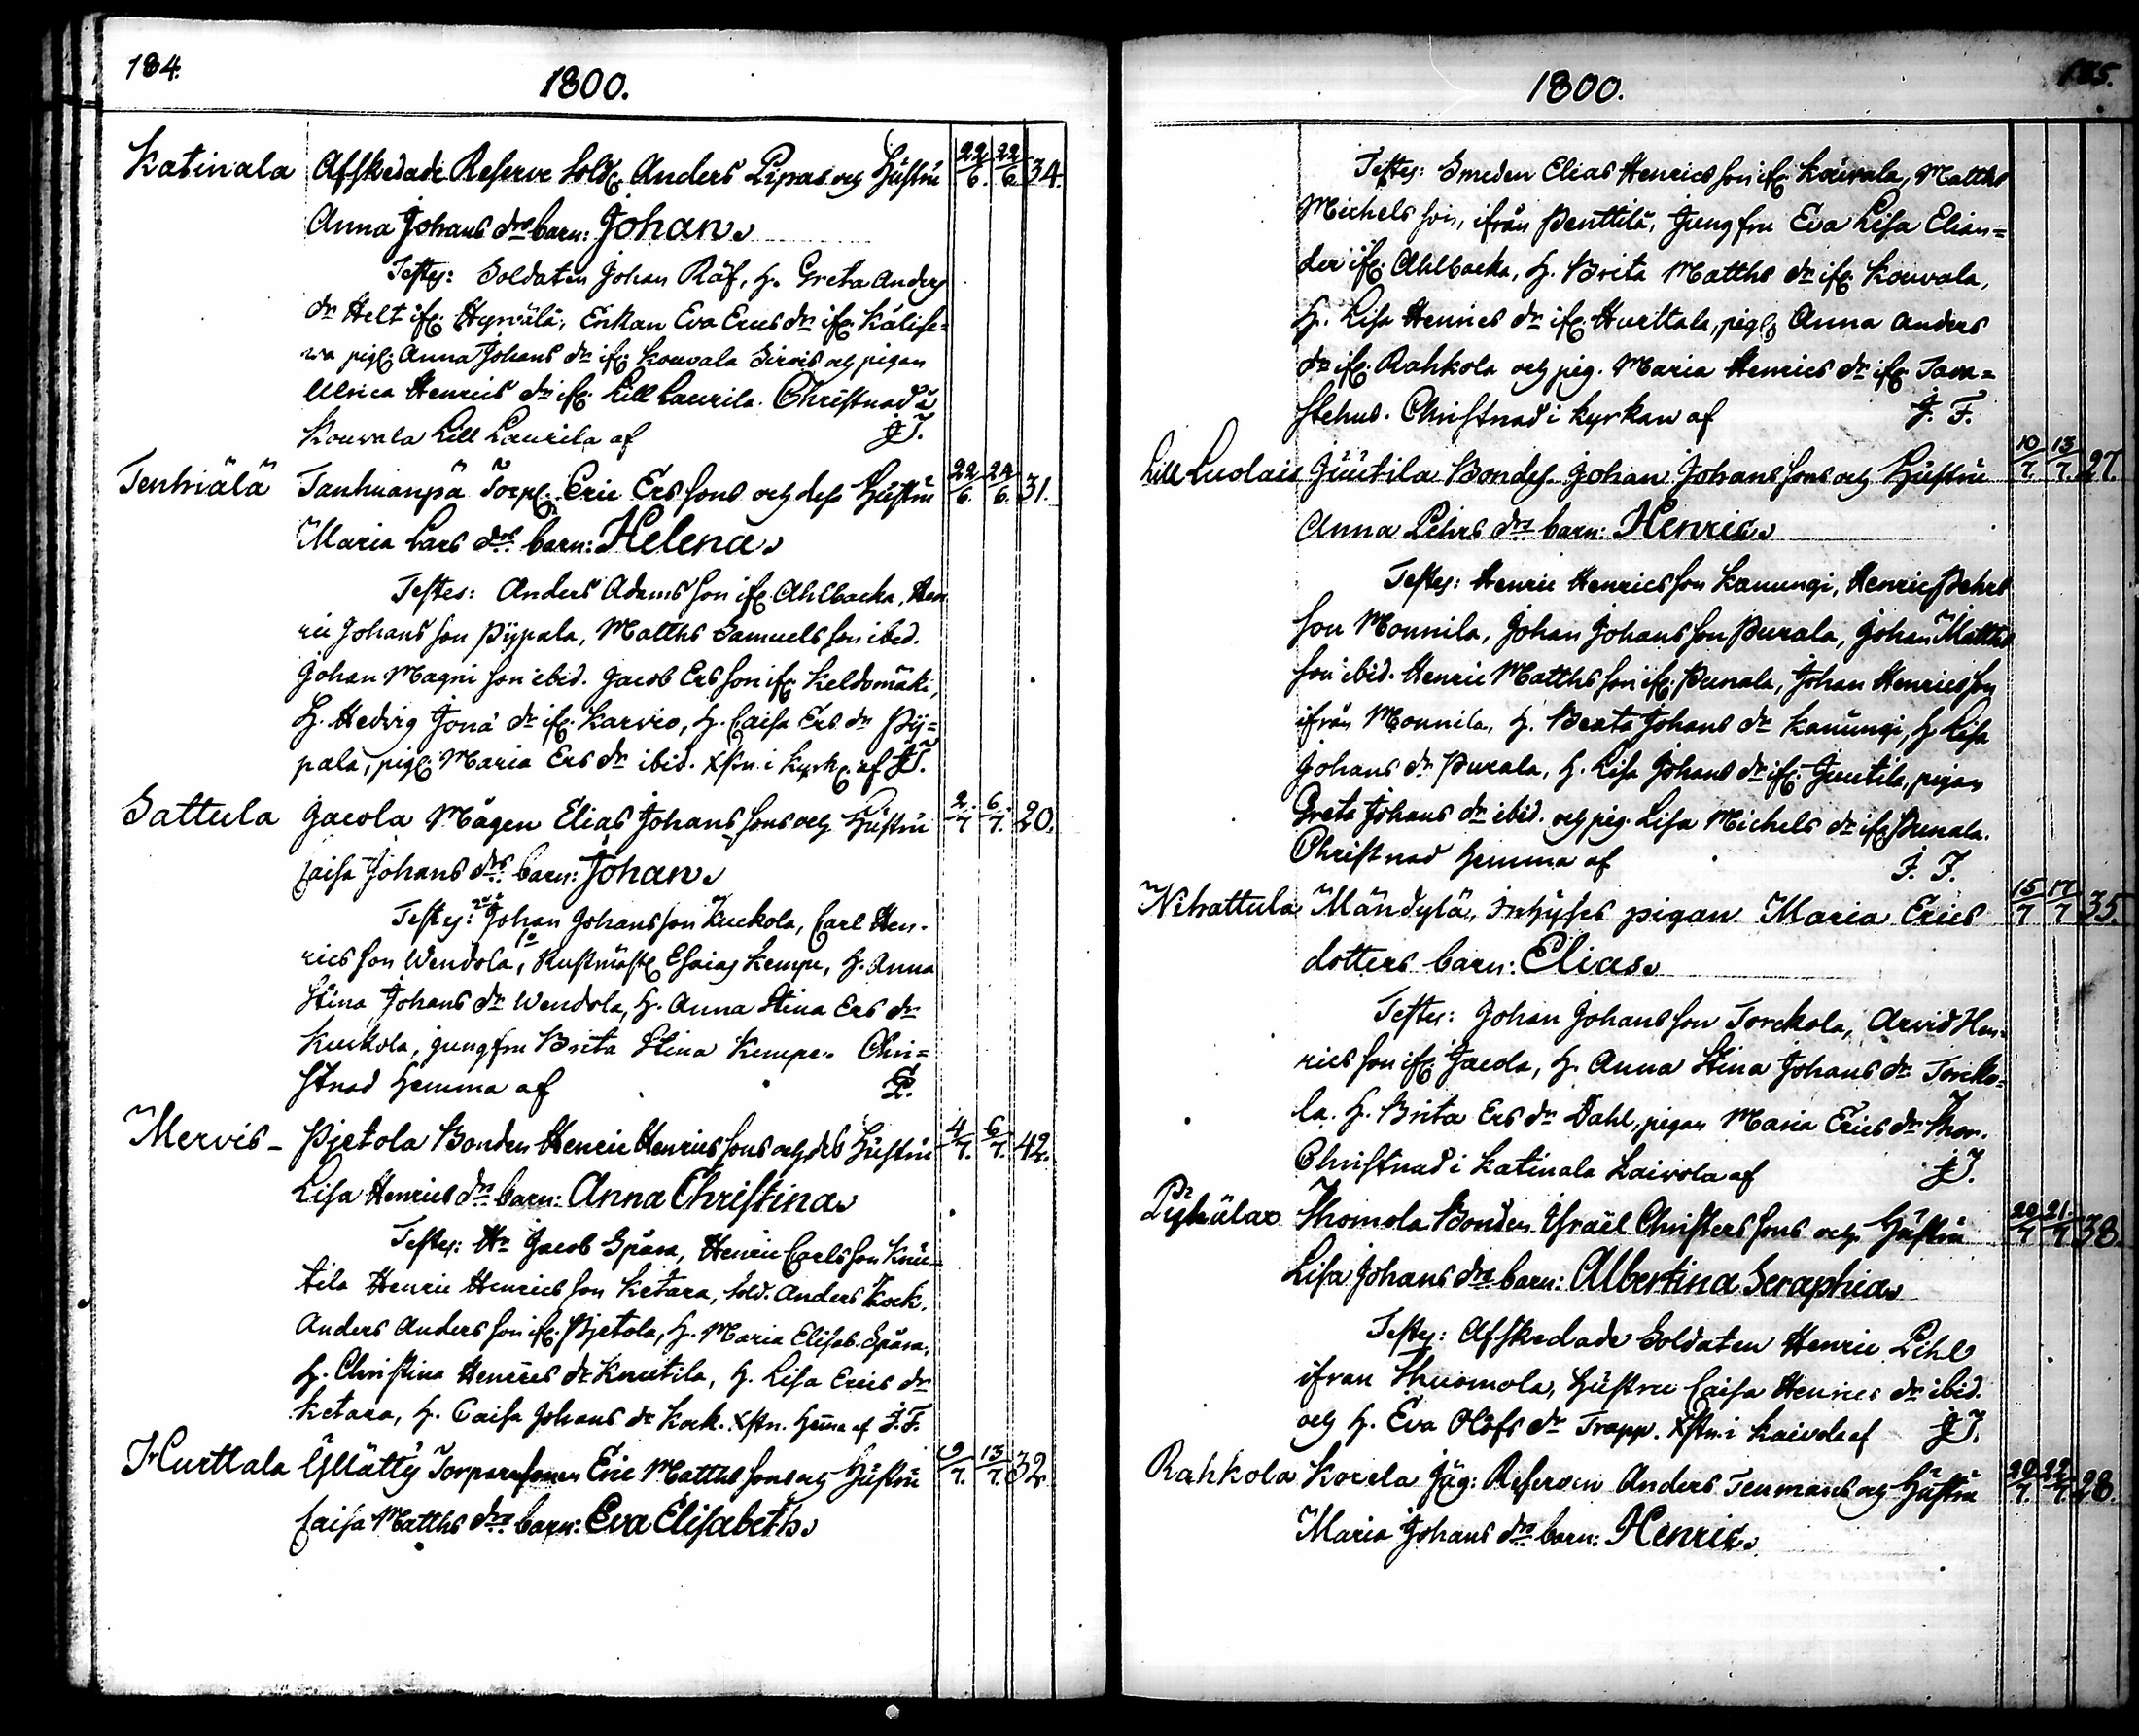 184.
1800.
Katinala Afskedade Reserve Sold. Anders Lipas och Hustru 22/6. 22/6. 34.
Anna Johans drs barn: Johan.
Testes: Soldaten Johan Räf, H. Greta Anders
dr Helt ifr. Hyrvälä, Enkan Eva Erics dr ifr. Kälise-
wa pig. Anna Johans dr ifr. Kouvala Sirvis och pigan
Ulrica Henrics dr ifr. Lill Laurila. Christnad i
Kouvala Lill Laurila af J.T.
Tenhiälä Tanhuanpä Torp. Eric Ers sons och dess Hustru 22/6. 24/6. 31.
Maria Lars drs barn: Helena.
Testes: Anders Adams son ifr. Ahlbacka, Hen
ric Johans son Pÿpala, Matths Samuels son ibid.
Johan Magni son ibid. Jacob Ers son ifr. Keldomäki,
H. Hedvig Jona dr ifr. Karvio, H. Caisa Ers dr Pÿ=
pala, pig. Maria Ers dr ibid. Xstn. i Kyrk. af J.T.
Sattula Jacola Mågen Elias Johans sons och Hustru 2/7 6/7. 20.
Caisa Johans drs barn: Johan.
Testes: Johan Johansson Kuckola, Carl Hen-
rics son Wendola, Rustmäst. Esaias Kempe, H. Anna
Stina Johans dr Wendola, H. Anna Stina Ers dr
Kuckola, jungfru Brita Stina Kempe. Chri=
stnad hemma af
Mervis - Pjetola Bonden Henric Henrics sons och des Hustru 4/7. 6/7. 42.
Lisa Henrics drs barn: Anna Christina.
Testes: Hr Jacob Spåra, Henric Carls son Knu-
tila Henric Henrics son Ketara, Sold. Anders Kock,
Anders Anders son ifr. Pjetola, H. Maria Elisab. Spåra,
H. Christina Henrics dr Knutila, H. Lisa Erics dr
Ketara, H. Caisa Johans dr Kock. Xstn. hema af J.F.
Hurttala Yllättÿ Eric Matths sons och Hustru 9/7. 13/7. 32
Caisa Matths drs barn: Eva Elisabeth.
185.
1800.
Testes: Smeden Elias Henrics son ifr. Kouvala, Matths
Michels son, ifrån Penttilä, Jungfru Eva Lisa Elian=
der ifr. Ahlbacka, H. Brita Matths dr ifr. Kouvala,
H. Lisa Henrics dr ifr. Hurttala, pig. Anna Anders
dr ifr. Rahkola och pig. Maria Henrics dr ifr. Tava=
stehus. Christnad i Kyrkan af J. F.
Lill Luolais Juutila Bond. Johan Johans sons och Hustru 10/7. 13/7. 27.
Anna Pehrs drs barn: Henric.
Testes: Henric Henrics son Kanungi, Henric Pehrs
son Monnila, Johan Johans son Purala, Johan Matths
son ibid. Henric Matths son ifr. Punala, Johan Henrics son
ifrån Monnila, H. Beata Johans dr Kanungi, H Lisa
Johans dr Purala, H. Lisa Johans dr ifr. Juutila, pigan
Greta Johans dr ibid. och pig. Lisa Michels dr ifr. Punala.
Christnad hemma af J. F.
Nihattula Mändylä, Inhyses pigan Maria Erics 15/7 17/7 35.
dotters barn: Elias.
Testes: Johan Johans son Torckola, Arvid Hen-
rics son ifr. Jacola, H. Anna Stina Johans dr Torcko-
la. H. Brita Ers dr Dahl, pigan Maria Erics dr
Christnad i Katinala Laivola af J.T.
Thomola Bonden Israël Christers sons och Hustru 20/7 21/7 38.
Lisa Johans drs barn: Albertina Seraphia.
Testes: Afskedade Soldaten Henric Pihl
ifran Thuomola, hustru Caisa Henrics dr ibid.
och H. Eva Olofs dr Trapp. Xstn. i Laivola af J.T.
Rahkola Korela Jäg: Reserven Anders Tenmans och Hustru 20/7. 22/7. 28.
Maria Johans drs barn: Henric.